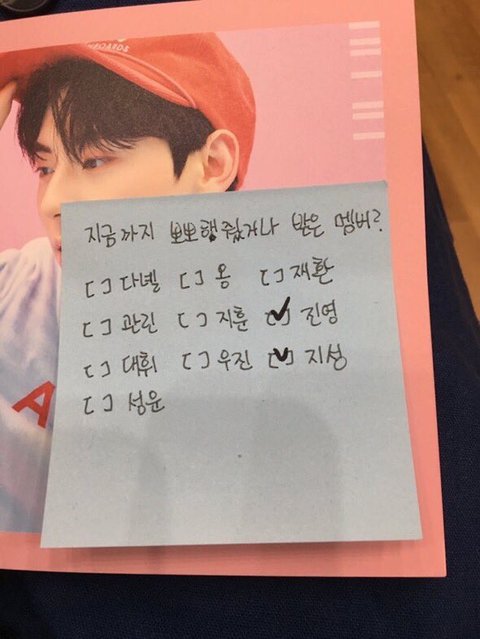 BOARDS
지금까지 뽀뽀해줬거나 받은 멤버?
[ ] 다넬 [ ] 옹 [ ] 재환
[ ] 관린 [ ] 지훈 [✓] 진영
[ ] 대휘 [ ] 우진 [✓] 지성
[ ] 성운
A